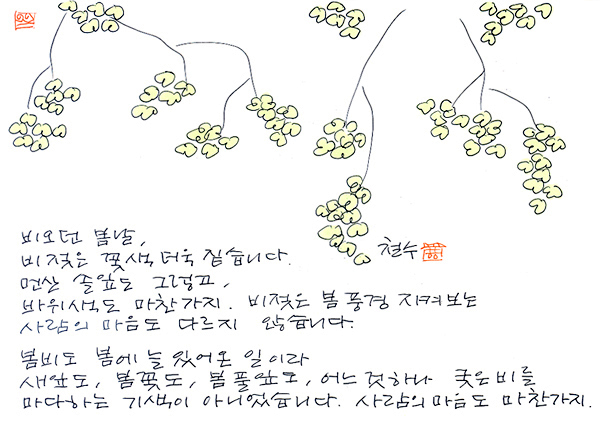 철수
비오던 봄날,
비젖은 꽃색 더욱 짙습니다.
먼산 솔잎도 그렇고,
바위색도 마찬가지. 비젖은 봄풍경 지켜보는
사람의 마음도 다르지 않습니다.
봄비도 봄에 늘 있어온 일이라
새잎도, 봄꽃도, 봄풀잎도, 어느것하나 궂은비를
마다하는 기색이 아니었습니다. 사람의 마음도 마찬가지.